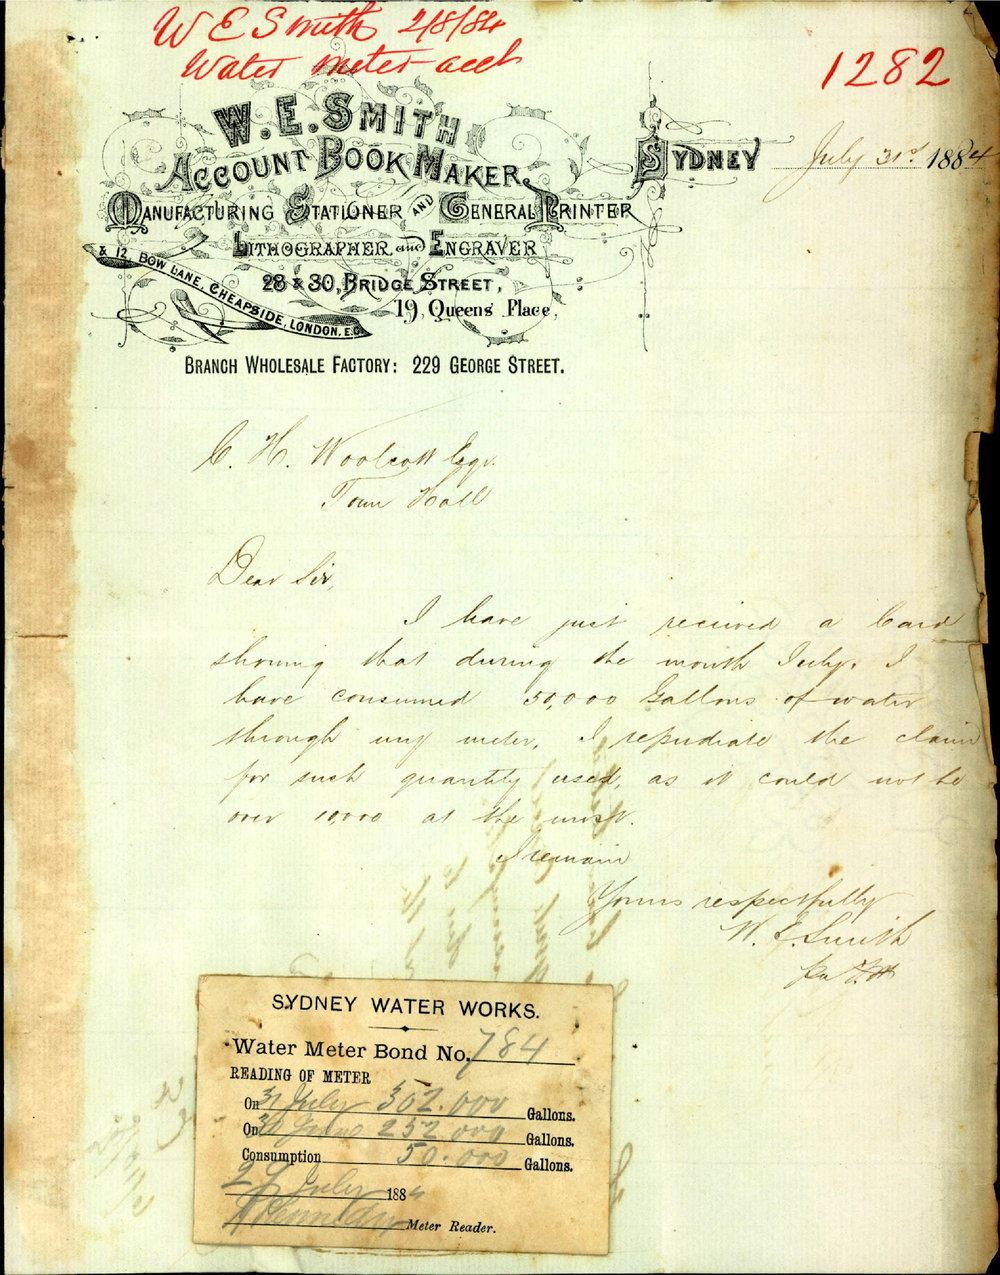 W E Smith 2/8/84
Water meter acct
1282
W. E. SMITH
ACCOUNT BOOK MAKER
MANUFACTURING STATIONER AND GENERAL PRINTER
LITHOGRAPHER and ENGRAVER
28 & 30, BRIDGE STREET,
19, Queens Place,
& 12, BOW LANE, CHEAPSIDE, LONDON, E.C.
BRANCH WHOLESALE FACTORY: 229 GEORGE STREET.
SYDNEY July 31st 1884
C. H. Woolcott Esqr.
Town Hall
Dear Sir,
I have just received a Card
showing that during the month July, I
have consumed 50,000 Gallons of water
through my meter, I repudiate the claim
for such quantity used, as it could not be
over 10,000 at the most.
I remain
Yours respectfully
W. E. Smith
SYDNEY WATER WORKS.
Water Meter Bond No. 784
READING OF METER
On 31 July 302.000 Gallons.
On 30 June 252.000 Gallons.
Consumption 50.000 Gallons.
July 1884
Meter Reader.